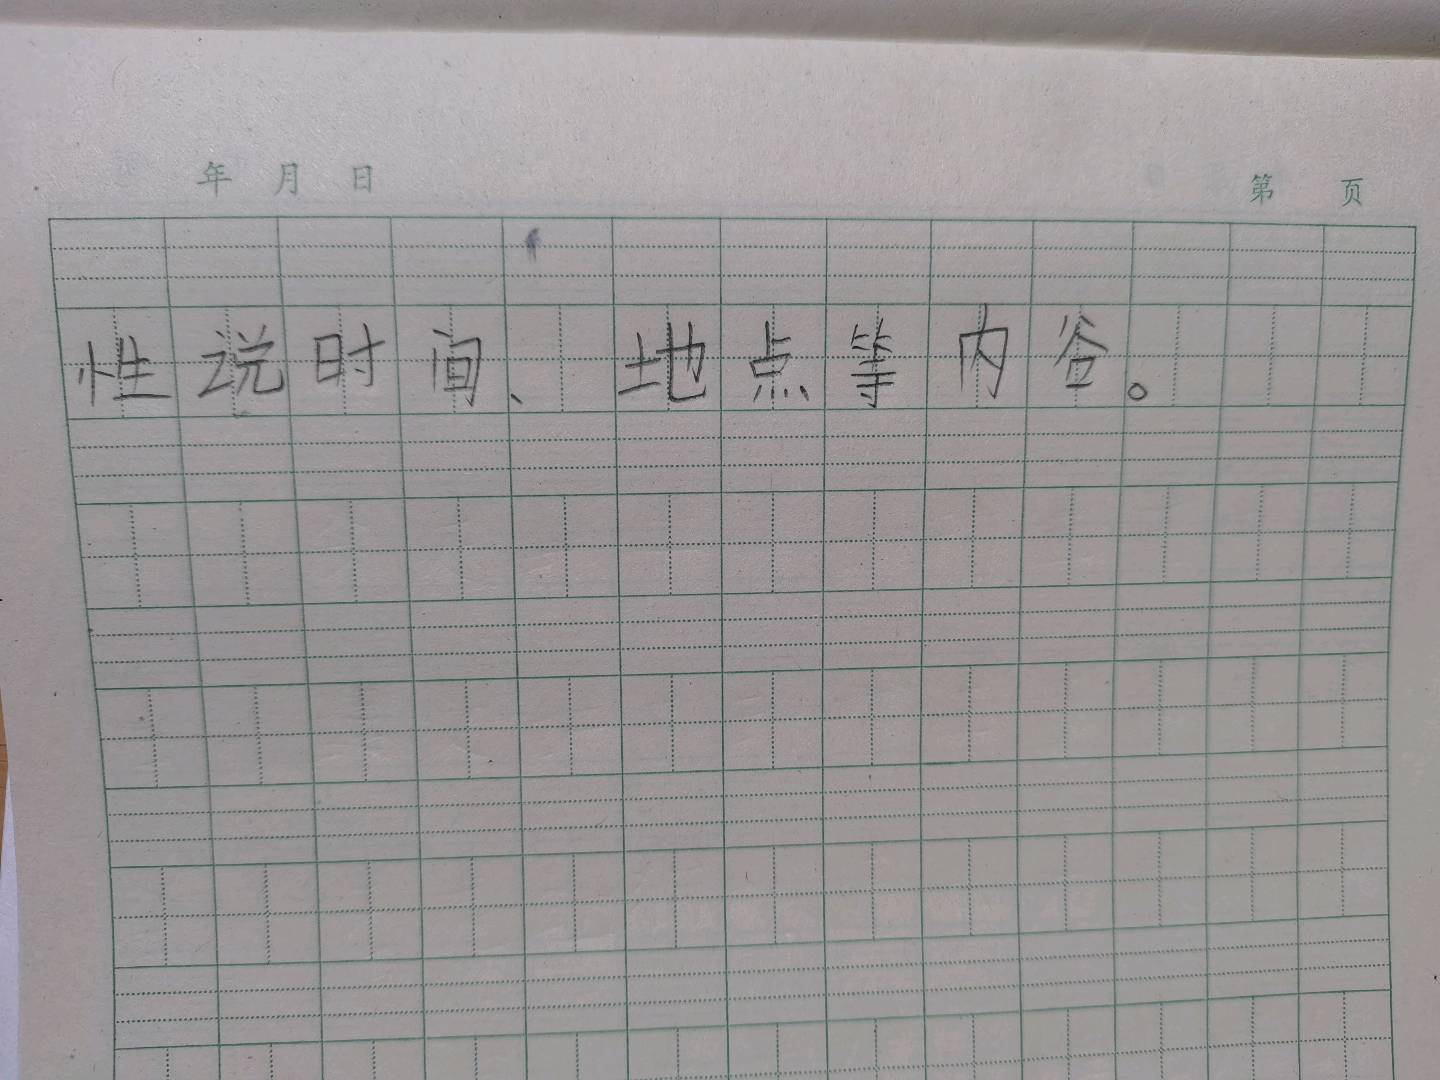 年 月 日 第 页
性说时间、地点等内谷。